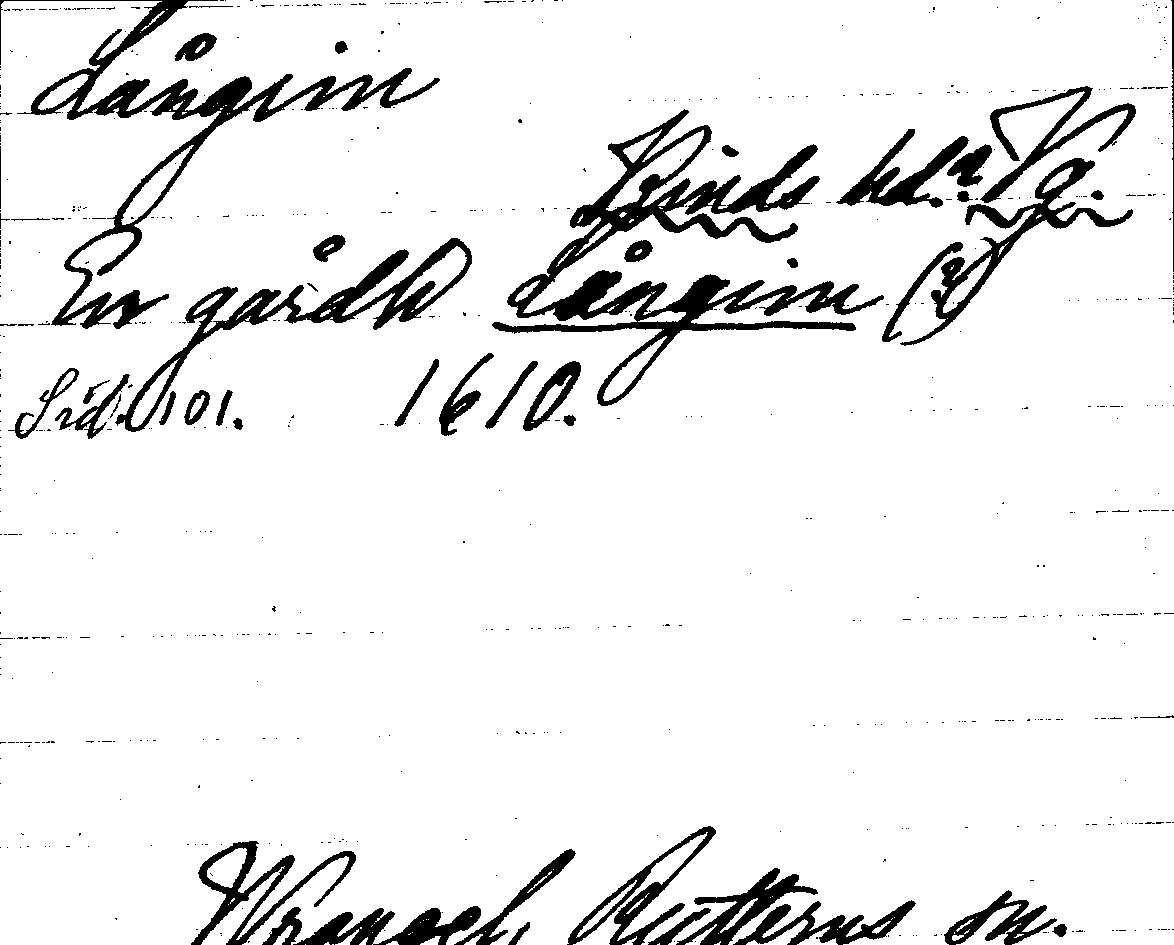 Långim
Kinds hd. Vg.
En gårdh Långim (?)
Sid. 101. 1610.
Wrangel, Rytterns sn.